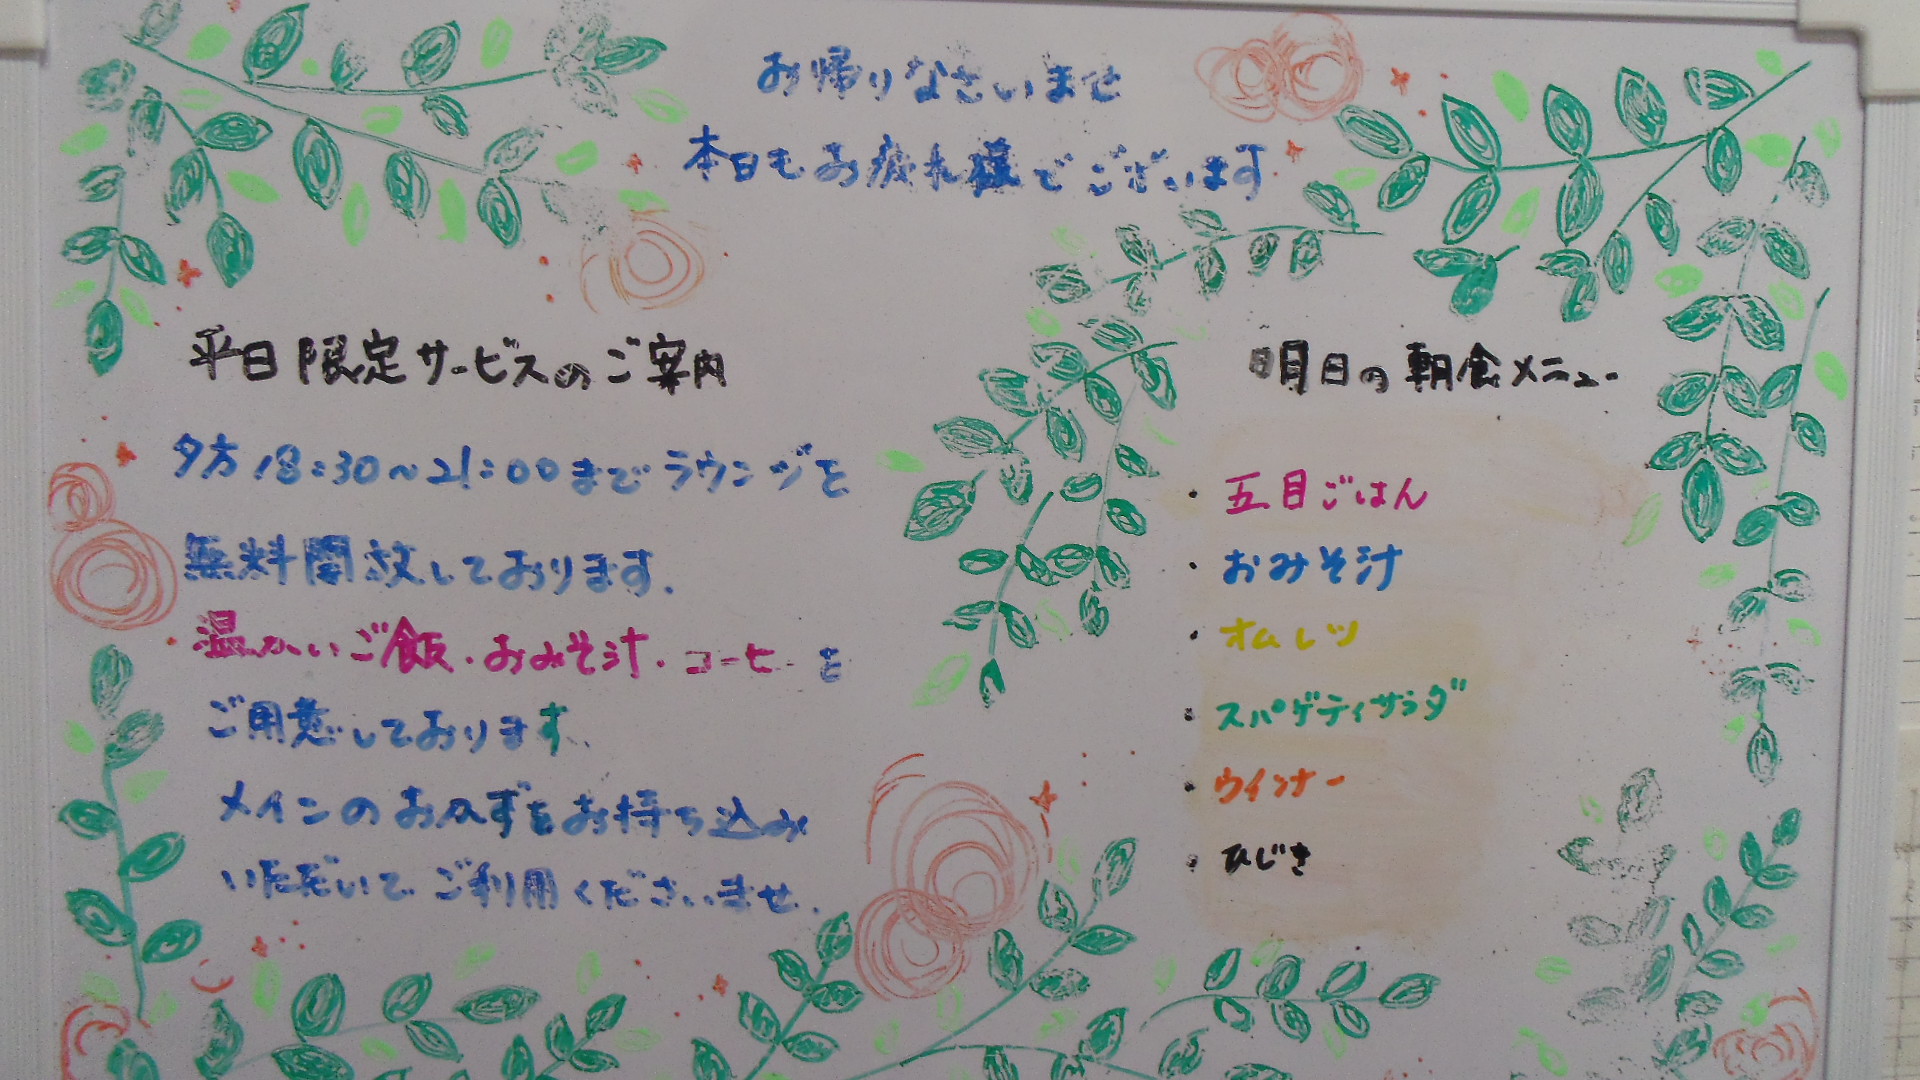 お帰りなさいませ
本日もお疲れ様でございます
平日限定サービスのご案内
夕方18:30~21:00までラウンジを
無料開放しております.
温かいご飯・おみそ汁・コーヒーを
ご用意しております.
メインのおかずをお持ち込み
いただいてご利用くださいませ.
明日の朝食メニュー
・五目ごはん
・おみそ汁
・オムレツ
・スパゲティサラダ
・ウインナー
・ひじき